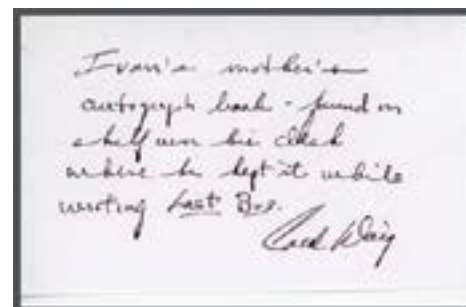 Ivan's mother's
autograph book - found on
shelf over his desk
where he kept it while
writing Last Bus.
Carol Doig